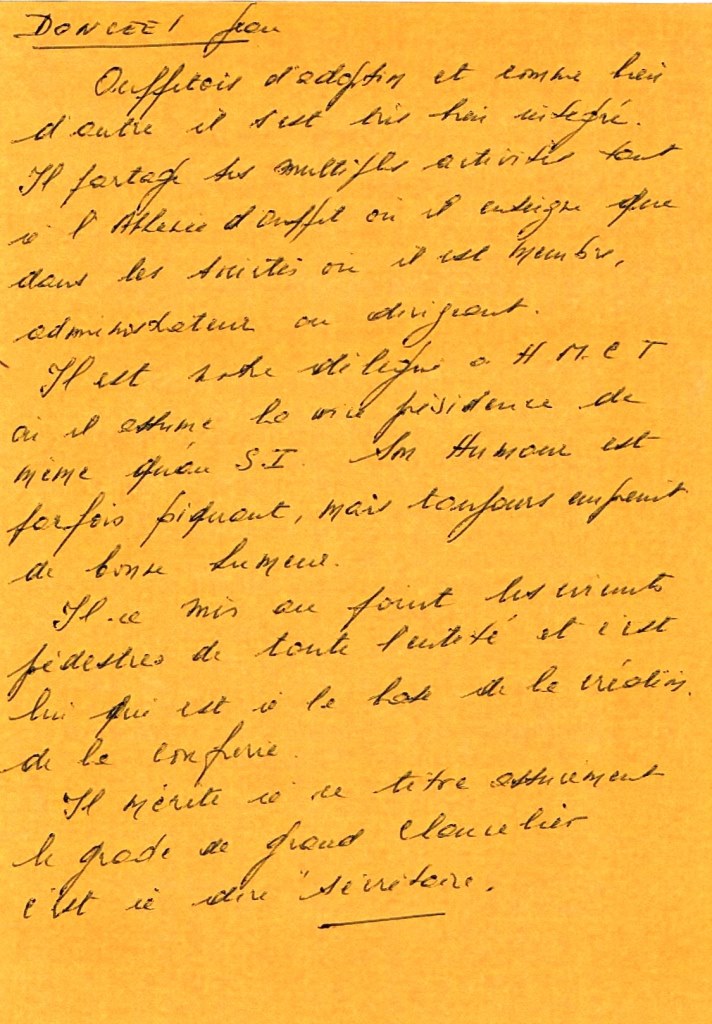 DONCEEL Jean
Ouffetois d'adoption et comme bien
d'autre il s'est très bien intégré.
Il partage ses multiples activités tant
à l'Athenée d'Ouffet où il enseigne que
dans les sociétés où il est membre,
administrateur ou dirigeant.
Il est notre délégué a H M.C T
où il assume la vice présidence de
même qu'au S.I. Son Humour est
parfois piquant, mais toujours empreint
de bonne humeur.
Il a mis au point les circuits
pédestres de toute l'entité et c'est
lui qui est à la base de la création
de la confrerie.
Il mérite à ce titre assurement
le grade de grand Chancelier
c'est à dire "secrétaire.